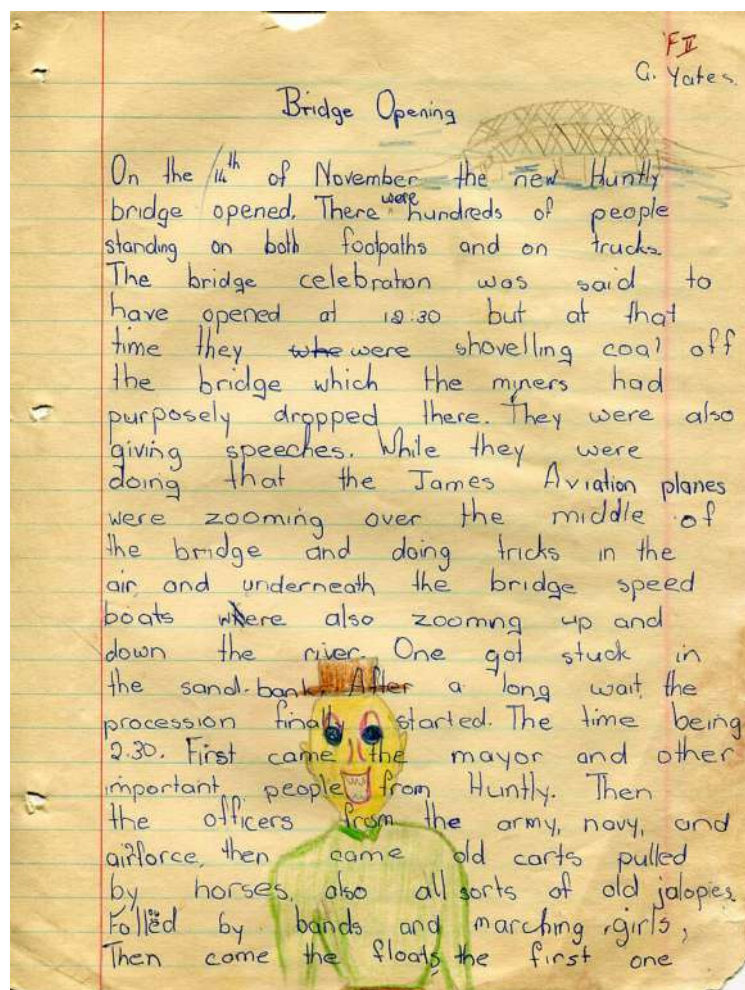 F II
G. Yates.
Bridge Opening
On the 14th of November the new Huntly
bridge opened. There were hundreds of people
standing on both footpaths and on trucks.
The bridge celebration was said to
have opened at 12:30 but at that
time they whe were shovelling coal off
the bridge which the miners had
purposely dropped there. They were also
giving speeches. While they were
doing that the James Aviation planes
were zooming over the middle of
the bridge and doing tricks in the
air, and underneath the bridge speed
boats where also zoomng up and
down the river. One got stuck in
the sand-bank. After a long wait, the
procession finally started. The time being
2.30. First came the mayor and other
important people from Huntly. Then
the officers from the army, navy, and
airforce, then came old carts pulled
by horses, also all sorts of old jalopies.
by bands and marching girls,
Then come the floats, the first one